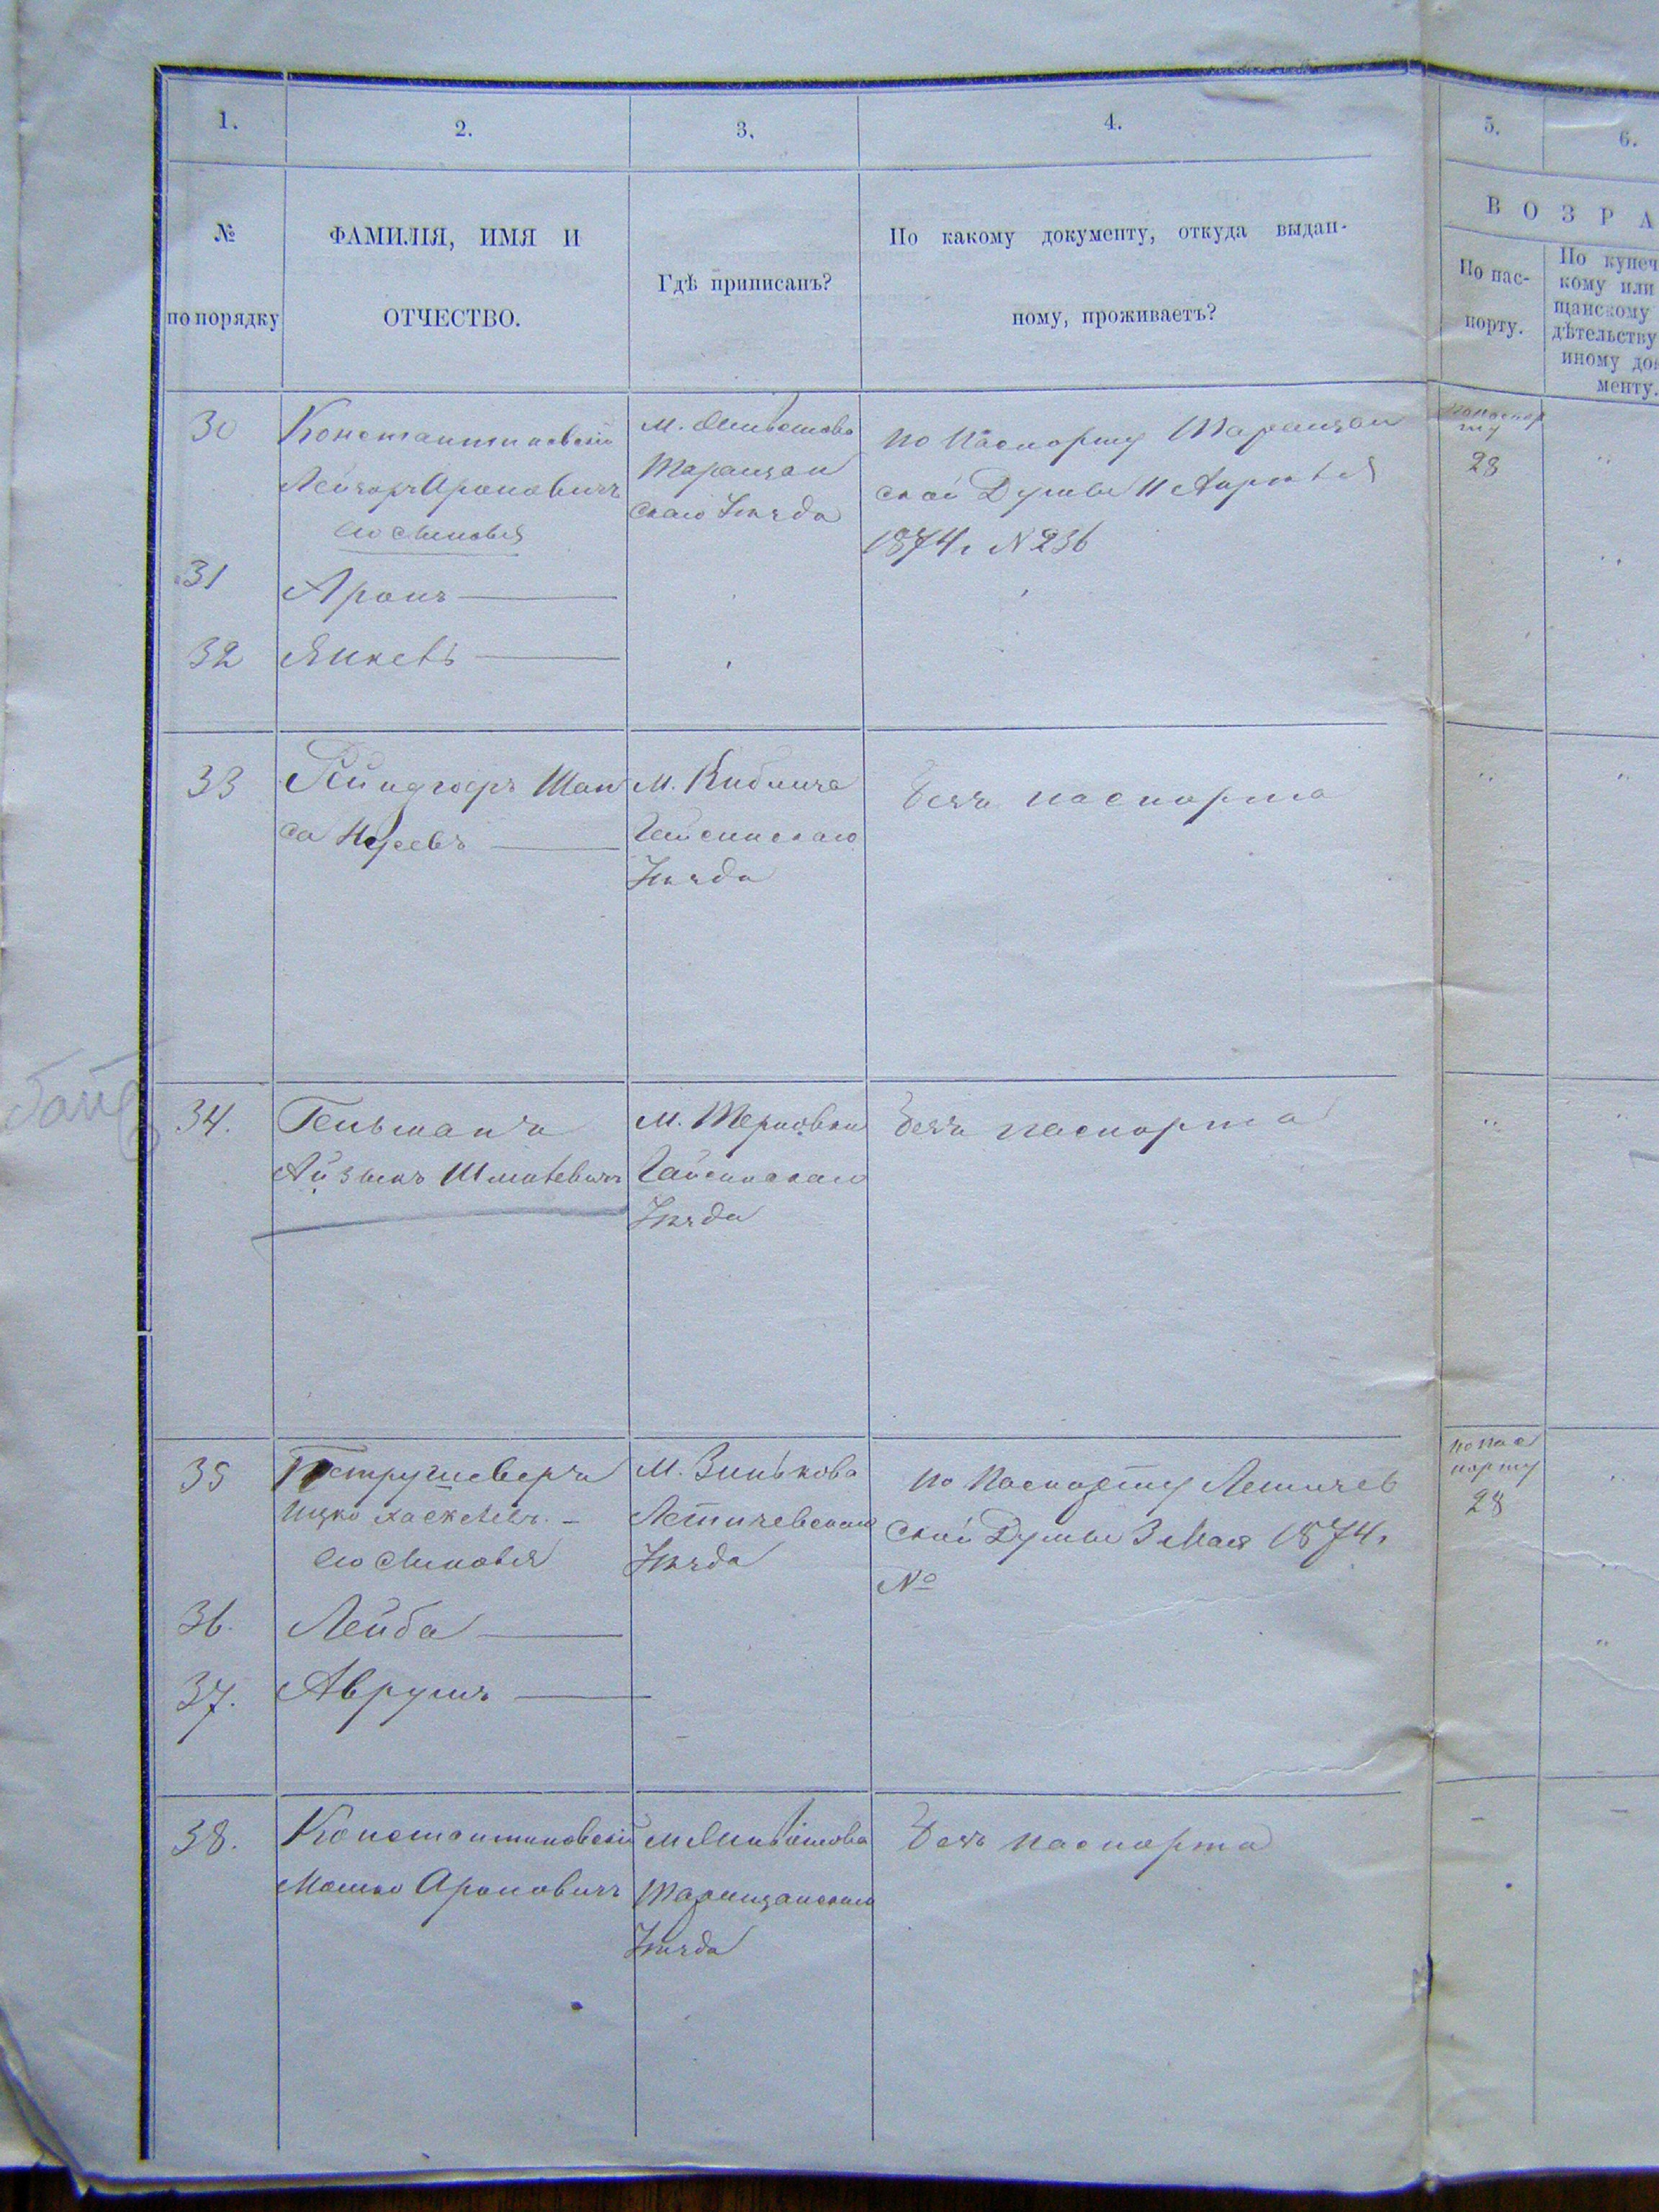 1.
2.
3.
4.
5.
6.
№
по порядку
ФАМИЛІЯ, ИМЯ И
ОТЧЕСТВО.
Гдѣ приписанъ?
По какому документу, откуда выдан-
ному, проживаетъ?
ВОЗРА
По пас-
порту.
По купеч
кому или
щанскому
дѣтельству
иному до
менту.
30
Константиновскій
Ароновичъ
его сыновья
м.
Таращан
скаго Уѣзда
по Паспорту Таращан
ской Думы 11 Апрѣля
1874 г. N 236
по паспор
ту
28
31
Аронъ
32
Янкель
33
Шап
са
м. Киблича
Гайсинскаго
Уѣзда
безъ паспорта
34.
Гельманъ
Айзыкъ Шмулевичъ
м. Терновки
Гайсинскаго
Уѣзда
безъ паспорта
35
Ицко Хаскелев.
его сыновья
м. Зинькова
Летичевскаго
Уѣзда
по Паспорту Летичев
ской Думы 3 Мая 1874 г.
№
по пас
порту
28
36.
Лейба
37.
Аврумъ
38.
Константиновскій
Мошко Ароновичъ
м.
Таращанскаго
Уѣзда
безъ паспорта